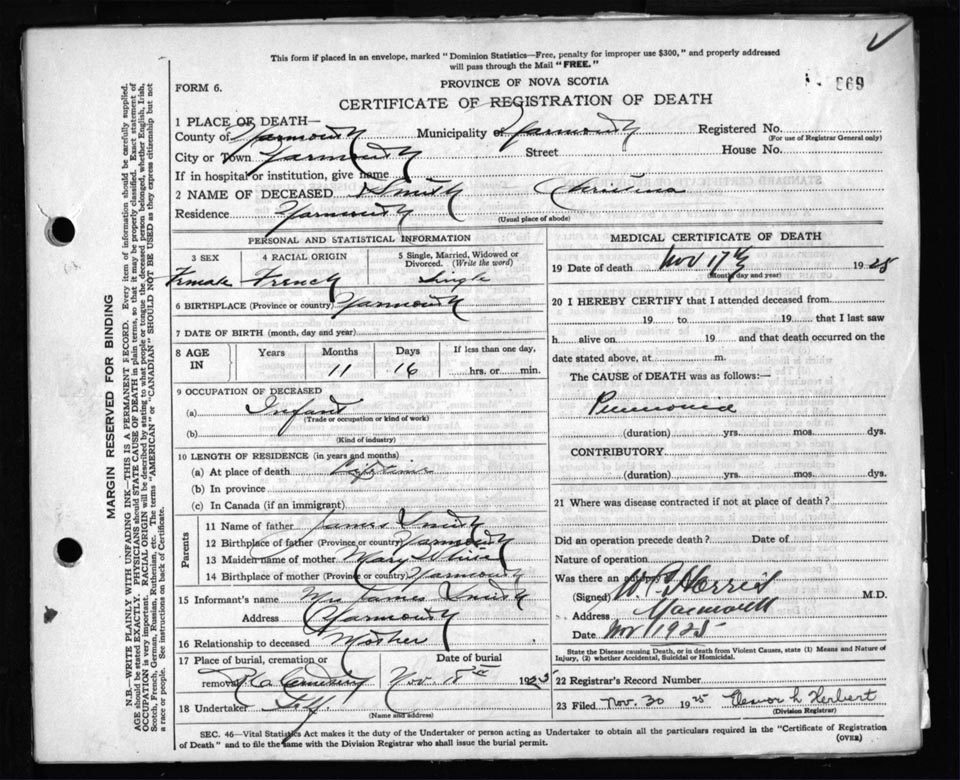 This form if placed in an envelope, marked " Dominion Statistics—Free, penalty for improper use $300, " and properly addressed
will pass through the Mail "FREE."
FORM 6.
PROVINCE OF NOVA SCOTIA
669
CERTIFICATE OF REGISTRATION OF DEATH
1 PLACE OF DEATH—
County of Yarmouth Municipality of Yarmouth Registered No.
(For use of Registrar General only)
City or Town Yarmouth Street House No.
If in hospital or institution, give name
2 NAME OF DECEASED Smith Christina
Residence Yarmouth
(Usual place of abode)
PERSONAL AND STATISTICAL INFORMATION
3 SEX 4 RACIAL ORIGIN 5 Single, Married, Widowed or
Divorced. (Write the word)
Female French Single
6 BIRTHPLACE (Province or country) Yarmouth
7 DATE OF BIRTH (month, day and year)
8 AGE IN Years Months Days If less than one day,
11 16 hrs. or min.
9 OCCUPATION OF DECEASED
(a) Infant
(Trade or occupation or kind of work)
(b)
(Kind of industry)
10 LENGTH OF RESIDENCE (in years and months)
(a) At place of death Lifetime
(b) In province
(c) In Canada (if an immigrant)
Parents
11 Name of father James Smith
12 Birthplace of father (Province or country) Yarmouth
13 Maiden name of mother Mary White
14 Birthplace of mother (Province or country) Yarmouth
15 Informant's name Mrs James Smith
Address Yarmouth
16 Relationship to deceased Mother
17 Place of burial, cremation or Date of burial
removal R C Cemetery Nov. 18th 1925
18 Undertaker
(Name and address)
MEDICAL CERTIFICATE OF DEATH
19 Date of death Nov 17th 1925
(Month, day and year)
20 I HEREBY CERTIFY that I attended deceased from
19 to 19 that I last saw
h alive on 19 and that death occurred on the
date stated above, at m.
The CAUSE of DEATH was as follows:—
Pneumonia
(duration) yrs. mos. dys.
CONTRIBUTORY
(duration) yrs. mos. dys.
21 Where was disease contracted if not at place of death?
Did an operation precede death? Date of
Nature of operation
Was there an
(Signed) M.D.
Address Yarmouth
Date Nov 1925
State the Disease causing Death, or in death from Violent Causes, state (1) Means and Nature of
Injury, (2) whether Accidental, Suicidal or Homicidal.
22 Registrar's Record Number
23 Filed Nov. 30 1925 Herbert
(Division Registrar)
SEC. 46—Vital Statistics Act makes it the duty of the Undertaker or person acting as Undertaker to obtain all the particulars required in the "Certificate of Registration
of Death" and to file the same with the Division Registrar who shall issue the burial permit.
(OVER)
MARGIN RESERVED FOR BINDING
N.B.—WRITE PLAINLY WITH UNFADING INK—THIS IS A PERMANENT RECORD. Every item of information should be carefully supplied.
AGE should be stated EXACTLY. PHYSICIANS should STATE CAUSE OF DEATH in plain terms, so that it may be properly classified. Exact statement of
OCCUPATION is very important. RACIAL ORIGIN will be described by stating to what people or tongue the deceased person belonged, whether English, Irish,
Scotch, French, German, Russian, Ruthenian, etc. The terms "AMERICAN" or "CANADIAN" SHOULD NOT BE USED as they express citizenship but not
a race or people. See instructions on back of Certificate.